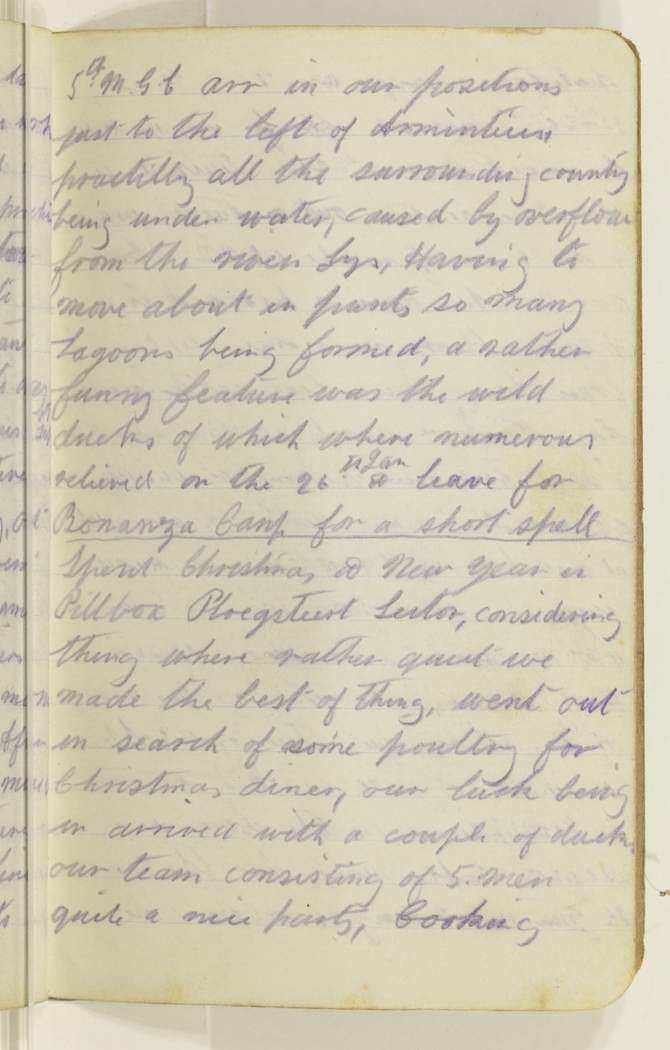 5th M.G.C arr in our positions
just to the left of Arminteirs
practilly all the surrounding county
being under water, caused by overflow
from the river Lys, Having to
move about in punts so many
Lagoons being formed, a rather
funny feature was the wild
ducks of which where numerous
relieved on the 26th Jan leave for
Bonanza Camp for a short spell
Spent Christmas & New Year in
Pillbox Ploegsteert Sector, considering
thing where rather quiet we
made the best of thing, went out
in search of some poultry for
Christmas diner, our luck being
in arrived with a couple of ducks
our team consisting of 5. men
quite a nice party, Cooking